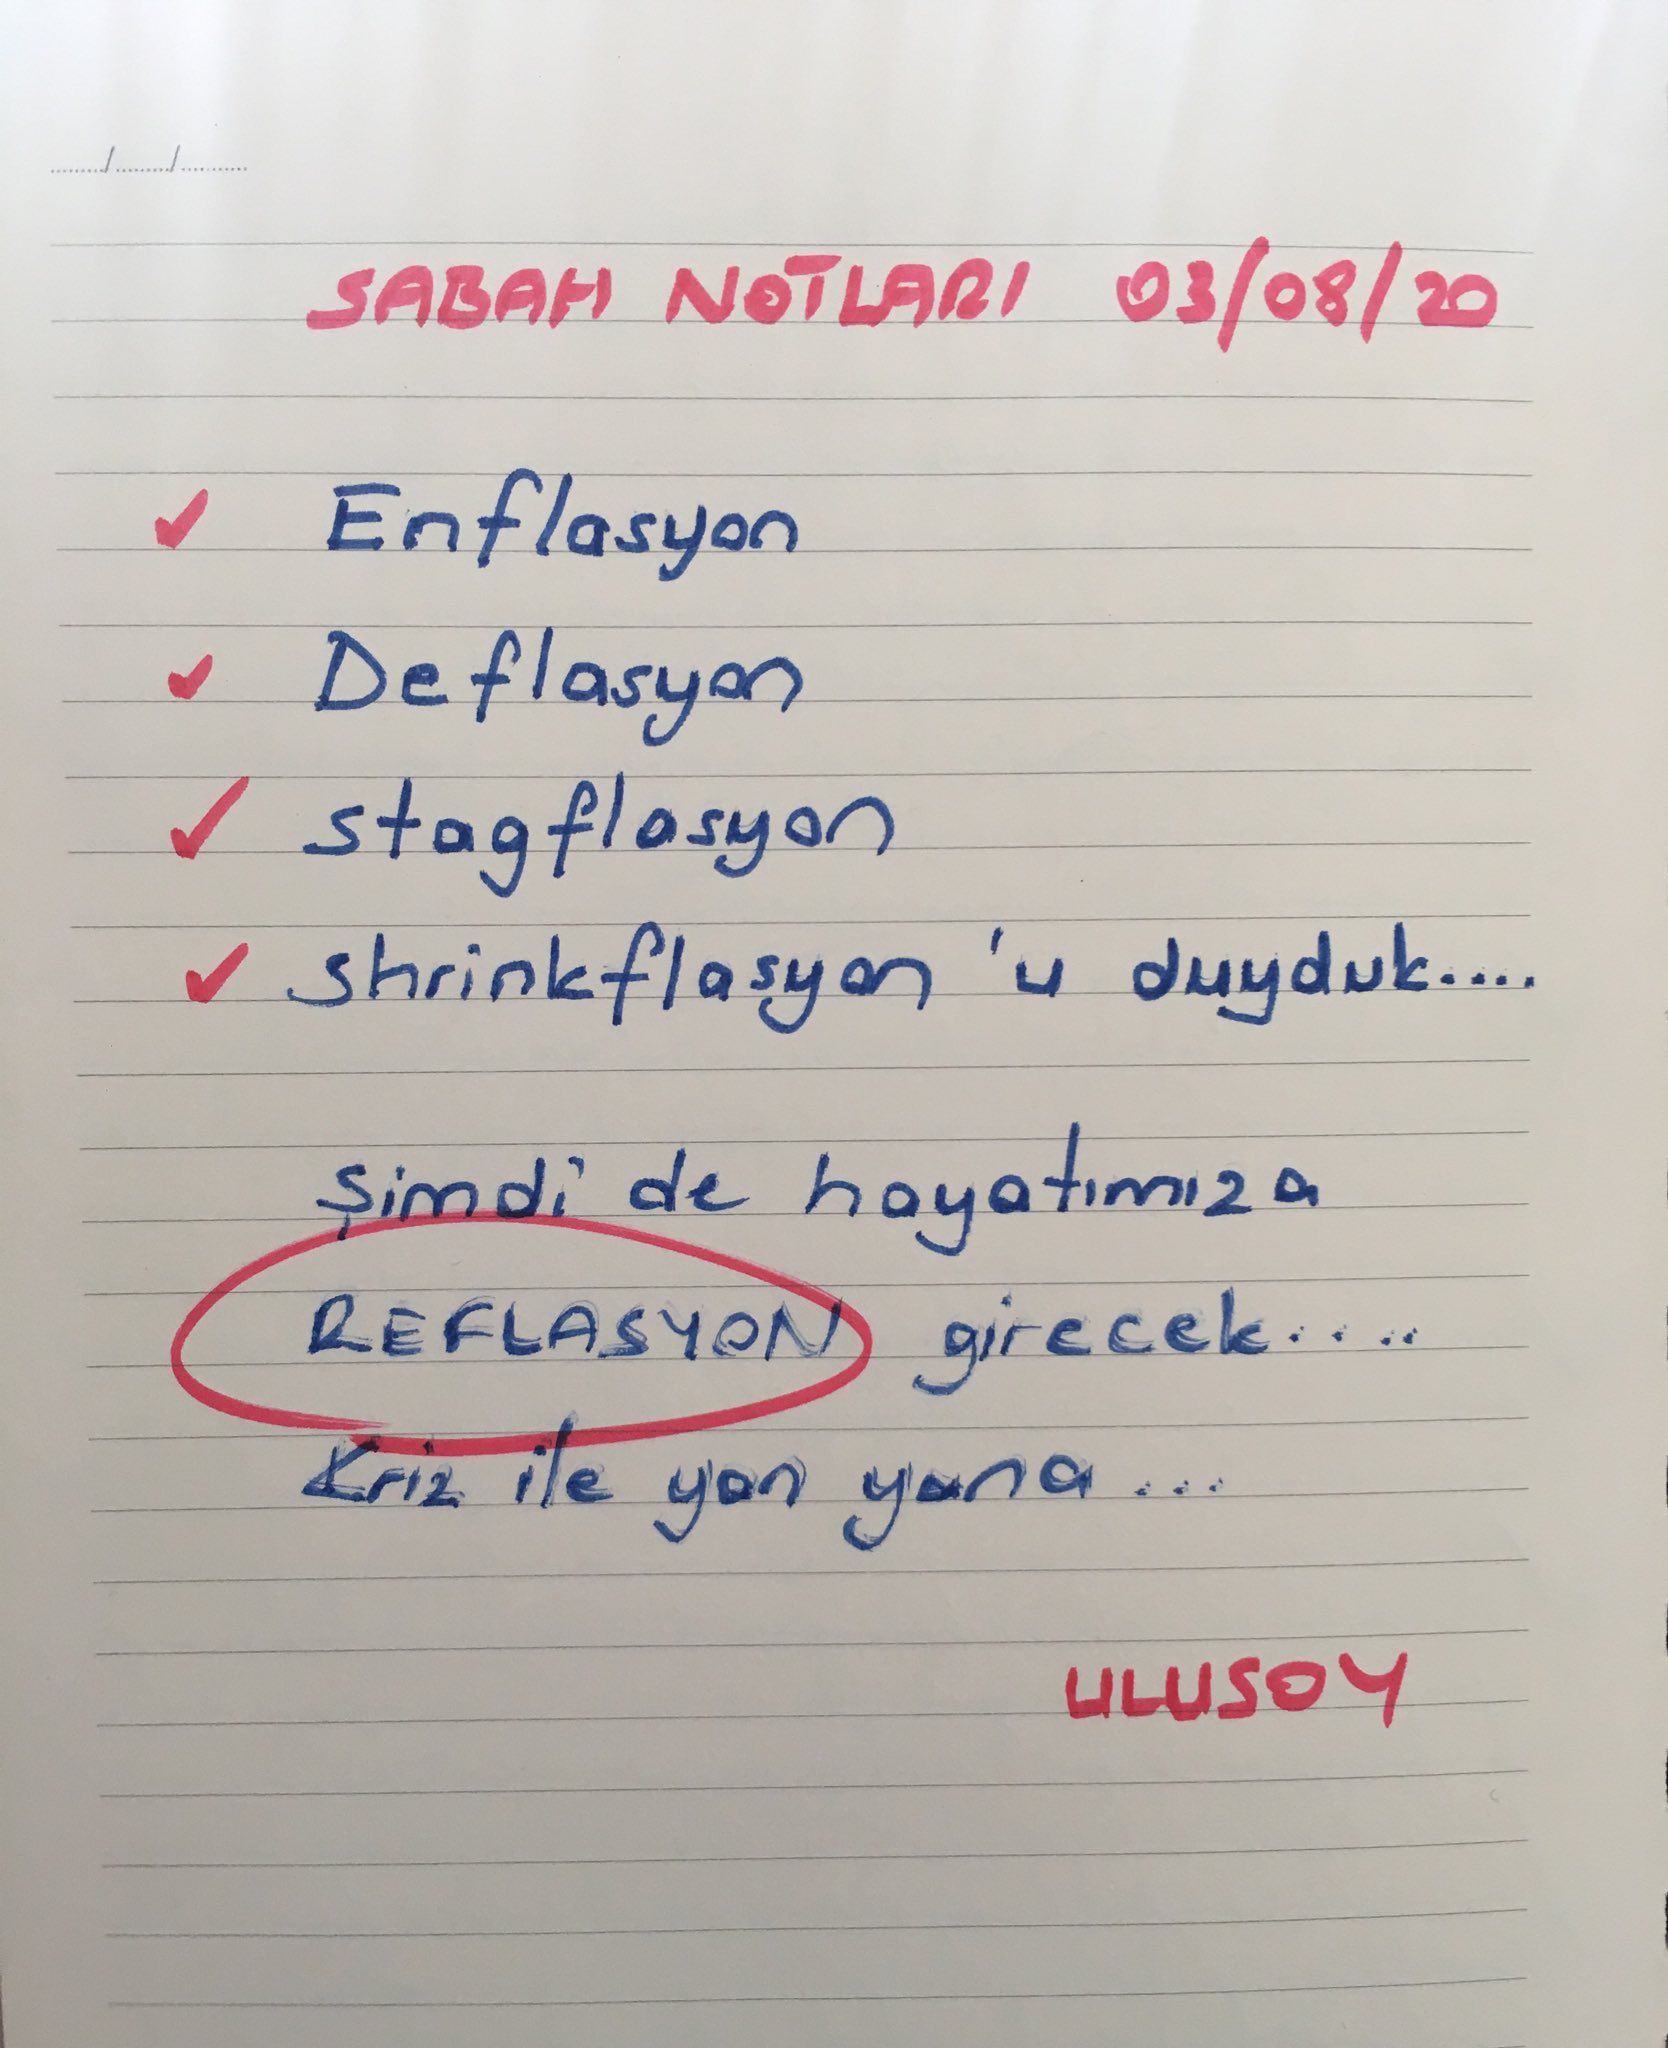 SABAH NOTLARI 03/08/20
✓ Enflasyon
✓ Deflasyon
✓ stagflasyon
✓ shrinkflasyon'u duyduk....
şimdi de hayatımıza
REFLASYON girecek.....
Kriz ile yan yana...
ULUSOY